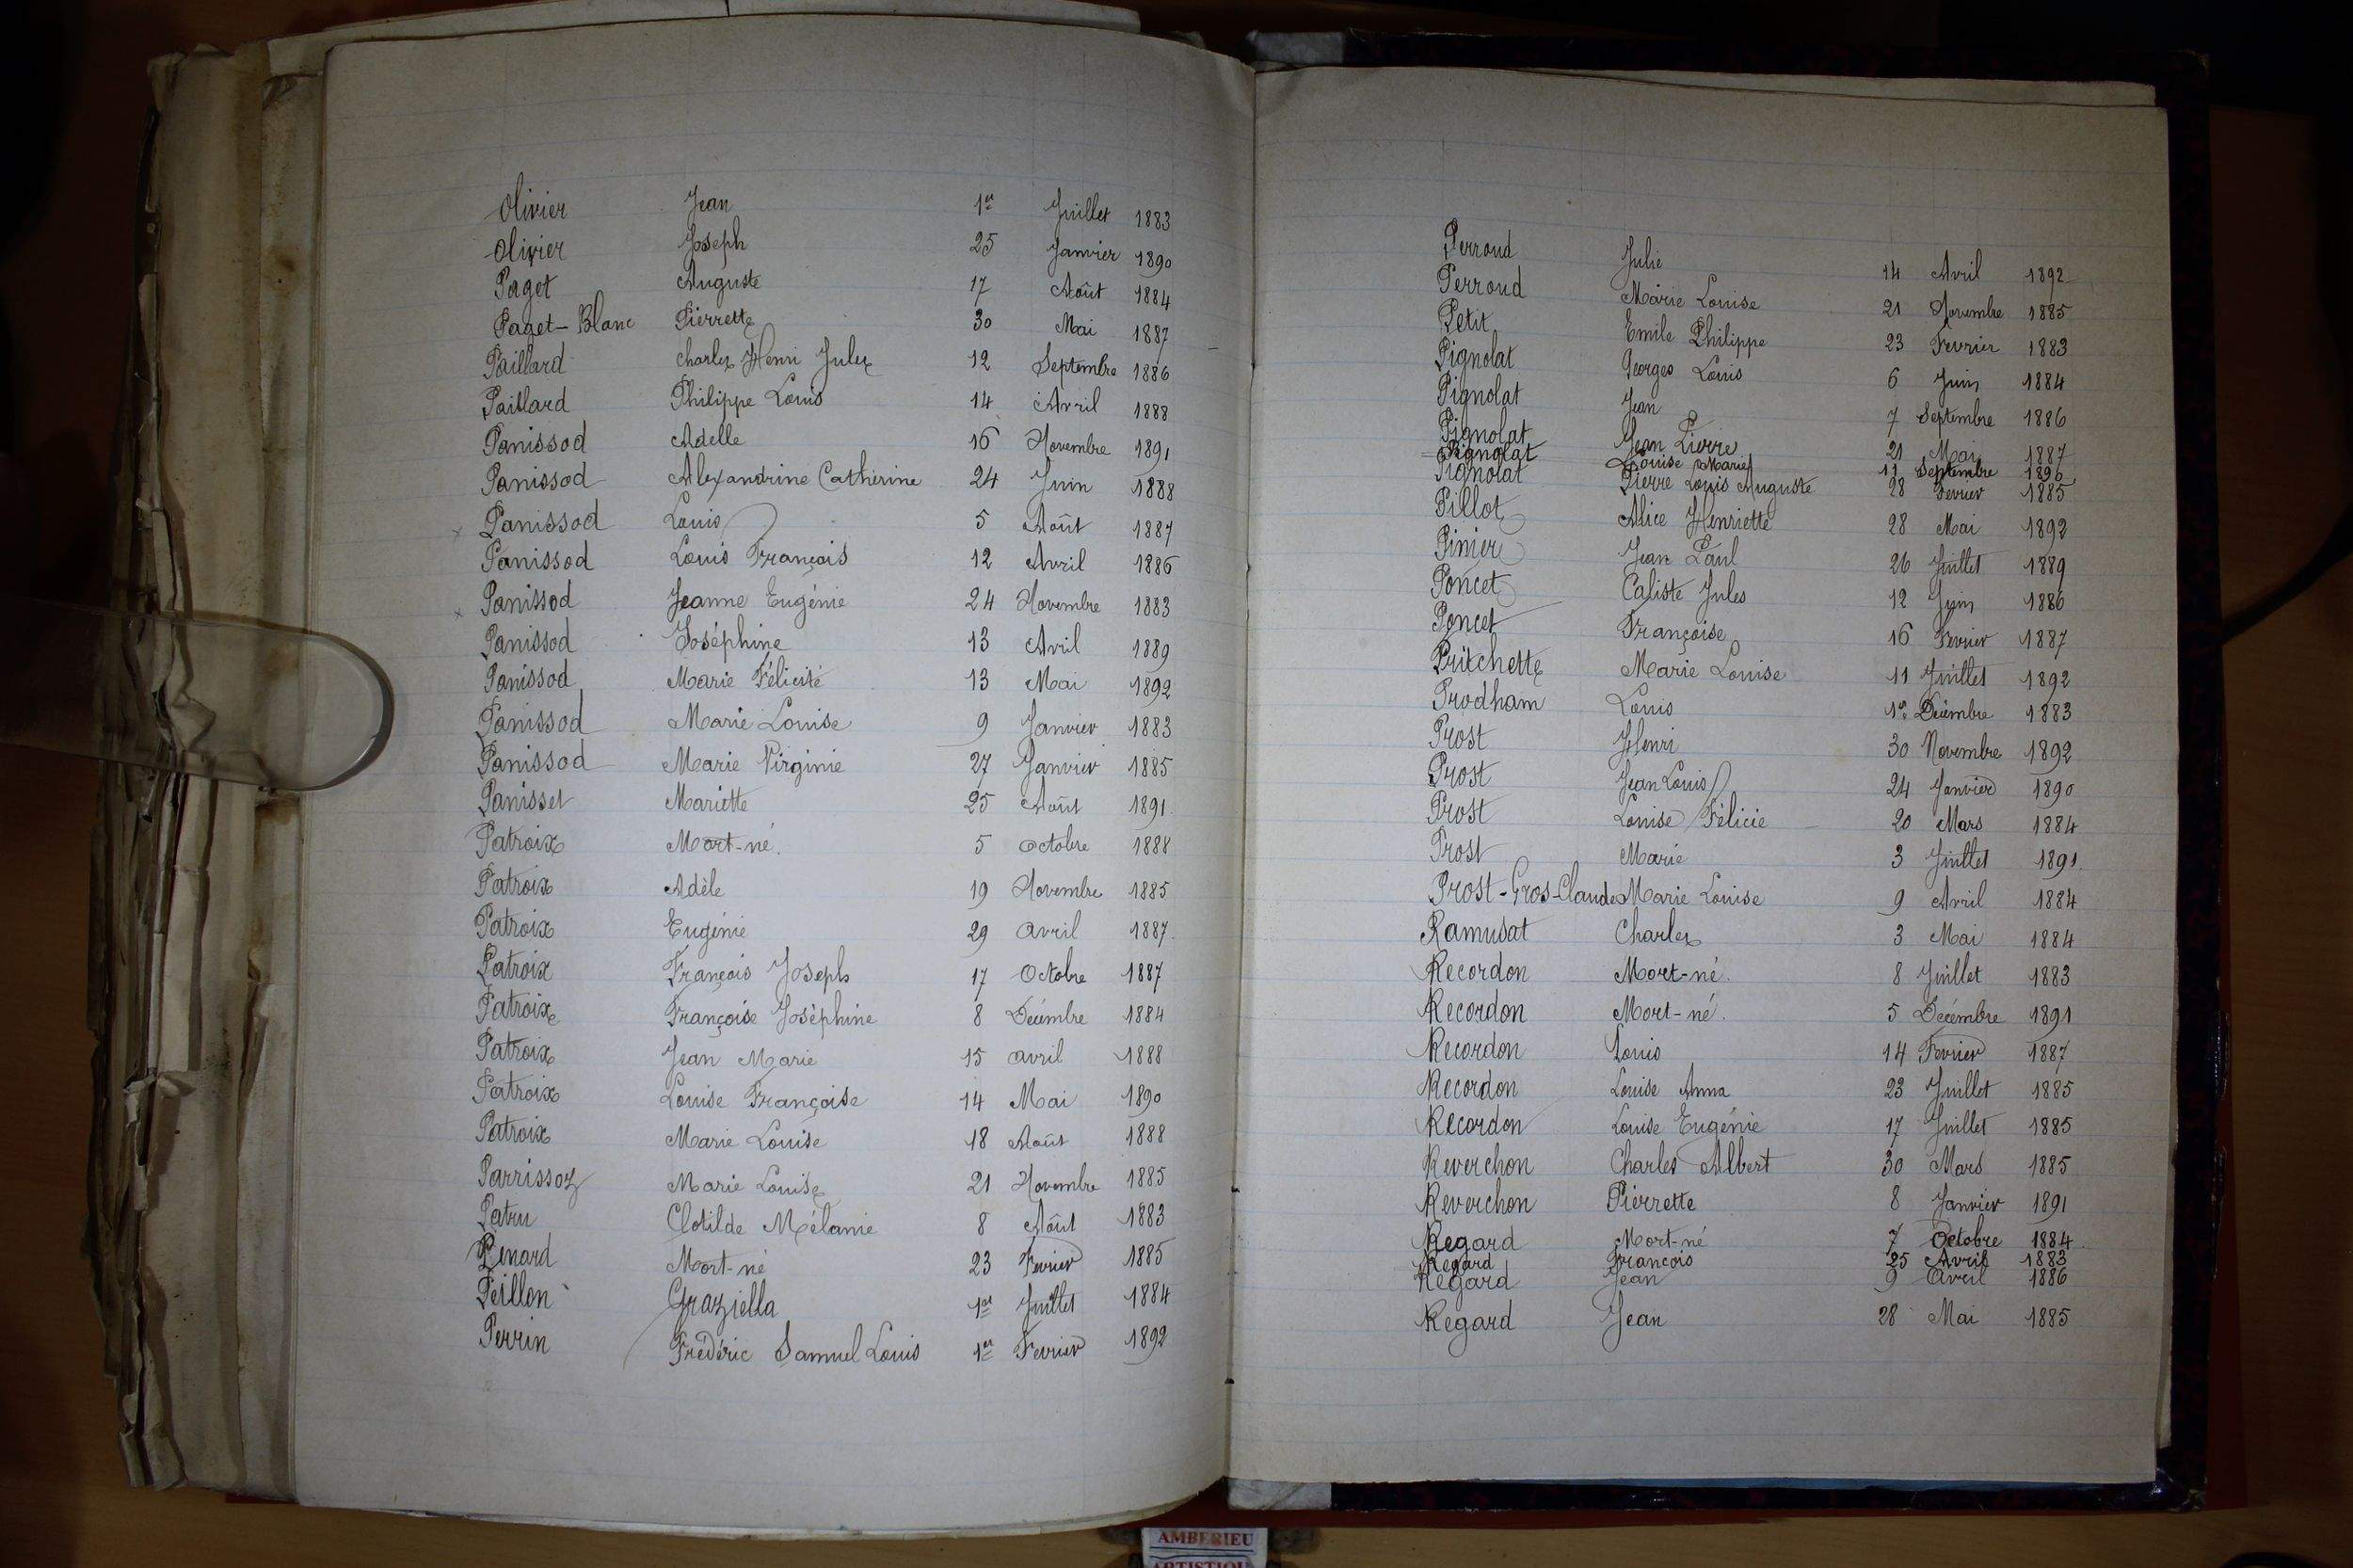 Olivier Jean 1er Juillet 1883
Olivier Joseph 25 Janvier 1890
Paget Auguste 17 Août 1884
Paget-Blanc Pierrette 30 Mai 1887
Paillard Charles Henri Jules 12 Septembre 1886
Paillard Philippe Louis 14 Avril 1888
Panissod Adelle 16 Novembre 1891
Panissod Alexandrine Catherine 24 Juin 1888
x Panissod Louis 5 Août 1887
Panissod Louis François 12 Avril 1886
x Panissod Jeanne Eugénie 24 Novembre 1883
Panissod Joséphine 13 Avril 1889
Panissod Marie Félicité 13 Mai 1892
Panissod Marie Louise 9 Janvier 1883
Panissod Marie Virginie 27 Janvier 1885
Panisset Mariette 25 Août 1891
Patroix Mort-né. 5 Octobre 1888
Patroix Adèle 19 Novembre 1885
Patroix Eugénie 29 avril 1887
Patroix François Joseph 17 Octobre 1887
Patroix Françoise Joséphine 8 Décembre 1884
Patroix Jean Marie 15 avril 1888
Patroix Louise Françoise 14 Mai 1890
Patroix Marie Louise 18 Août 1888
Parrissoz Marie Louise 21 Novembre 1885
Patru Clotilde Mélanie 8 Août 1883
Penard Mort-né 23 Fevrier 1885
Peillon Graziella 1er Juillet 1884
Perrin Frédéric Samuel Louis 1er Fevrier 1892
Perroud Julie 14 Avril 1892
Perroud Marie Louise 21 Novembre 1885
Petit Emile Philippe 23 Fevrier 1883
Pignolat Georges Louis 6 Juin 1884
Pignolat Jean 7 Septembre 1886
Pignolat Jean Pierre 21 Mai 1887
Pignolat Louise Marie 11 Septembre 1890
Pignolat Pierre Louis Auguste 28 Fevrier 1885
Pillot Alice Henriette 28 Mai 1892
Pinier Jean Paul 26 Juillet 1889
Poncet Caliste Jules 12 Juin 1886
Poncet Françoise 16 Fevrier 1887
Pritchette Marie Louise 11 Juillet 1892
Prodham Louis 1er Décembre 1883
Prost Henri 30 Novembre 1892
Prost Jean Louis 24 Janvier 1890
Prost Louise Félicie 20 Mars 1884
Prost Marie 3 Juillet 1891
Prost-Gros-Claude Marie Louise 9 Avril 1884
Ramusat Charles 3 Mai 1884
Recordon Mort-né. 8 Juillet 1883
Recordon Mort-né. 5 Décembre 1891
Recordon Louis 14 Fevrier 1887
Recordon Louise Anna 23 Juillet 1885
Recordon Louise Eugénie 17 Juillet 1885
Reverchon Charles Albert 30 Mars 1885
Reverchon Pierrette 8 Janvier 1891
Regard Mort-né 7 Octobre 1884
Regard François 25 Avril 1883
Regard Jean 9 avril 1886
Regard Jean 28 Mai 1885
AMBERIEU